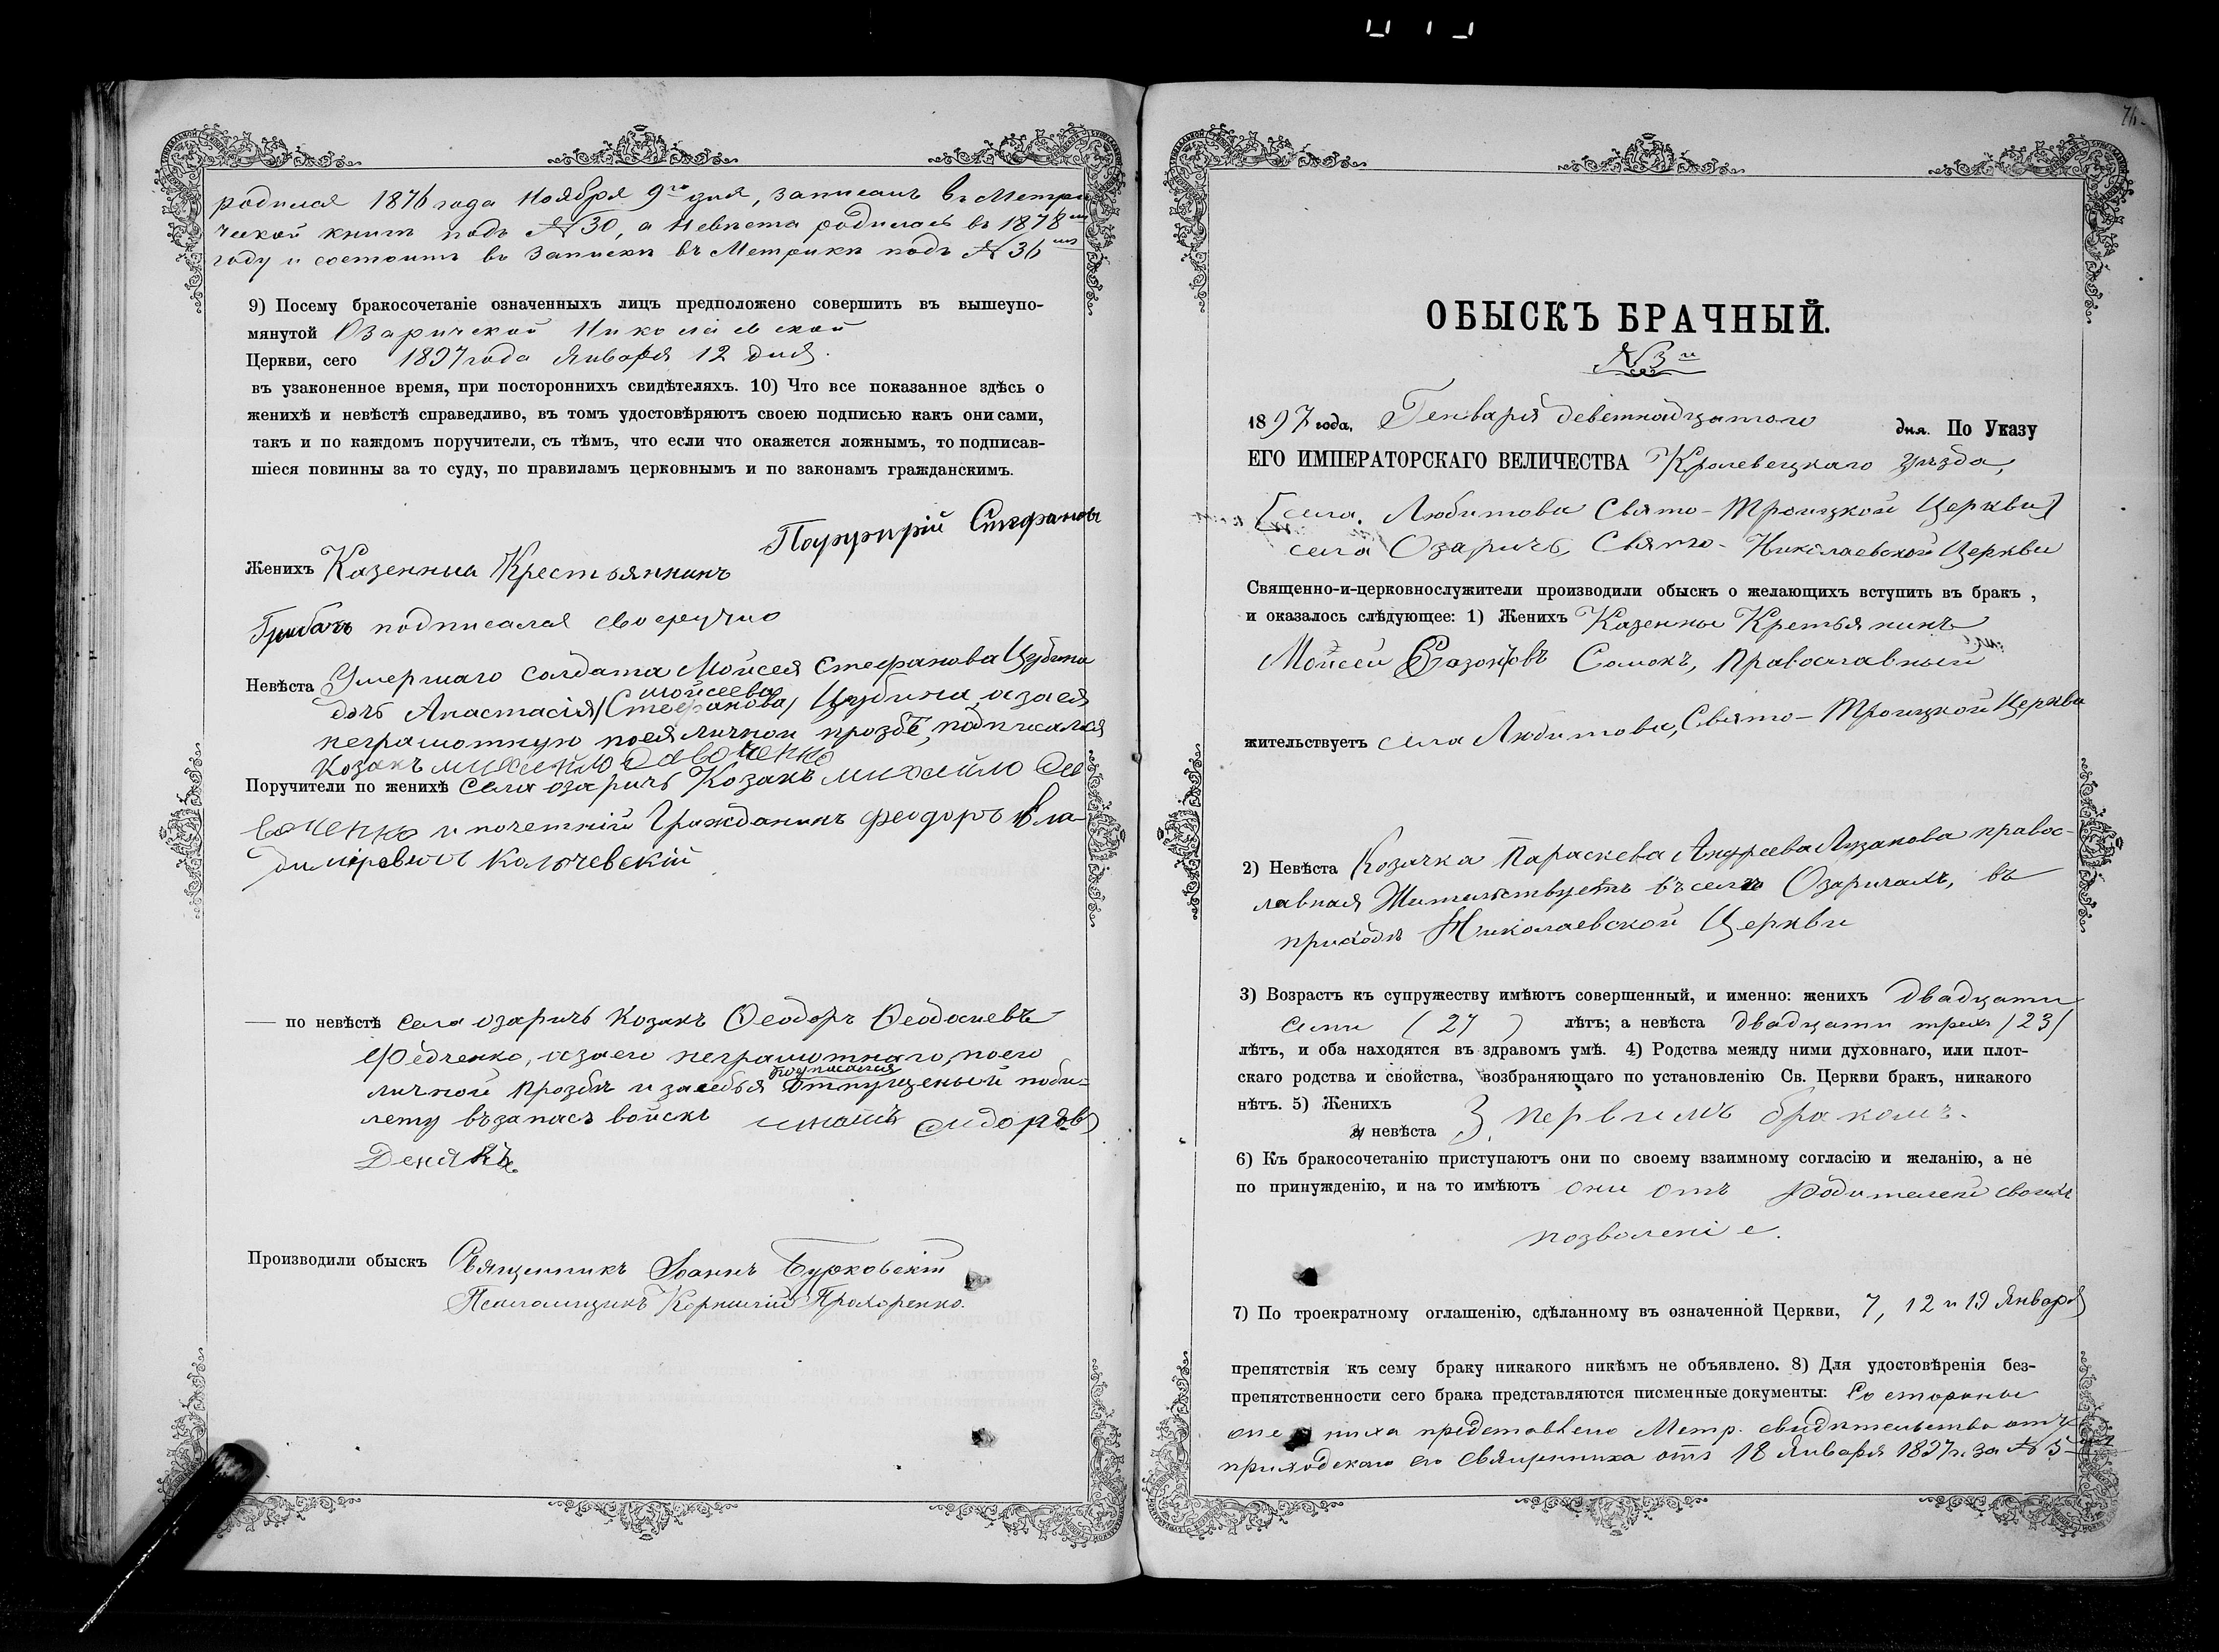 родился 1876 года Ноября 9го дня, записанъ въ Метри
ческой книгѣ подъ №30, а Невѣста родилась въ 1878мъ
году и состоитъ въ Запискѣ въ Метрикѣ подъ №36мъ
9) Посему бракосочетаніе означенныхъ лицъ предположено совершить въ вышеупо-
мянутой Озаричской Николаевской
Церкви, сего 1897 года Января 12 дня.
въ узаконенное время, при постороннихъ свидѣтеляхъ. 10) Что все показанное здѣсь о
женихѣ и невѣстѣ справедливо, въ томъ удостовѣряютъ своею подписью какъ они сами,
такъ и по каждомъ поручители, съ тѣмъ, что если что окажется ложнымъ, то подписав-
шіеся повинны за то суду, по правиламъ церковнымъ и по законамъ гражданскимъ.
Женихъ Казенныи Крестьянинъ Порфирій Стефановъ
Грибачъ подписался своеручно
Невѣста Умершаго солдата Мойсея Стефанова
дочь Анастасія /Стефанова/ мойсеева
неграмотную поея личной прозбѣ, подписался
Козакъ михайло
Поручители по женихѣ села озаричъ Козакъ михайло
и почетній Гражданинъ феодоръ Вла-
диміровичъ
— по невѣстѣ села озаричъ козакъ Ѳеодоръ Ѳеодосиевъ
Федченко, азаего неграмотнаго, поего
личной прозбѣ и засебья подписался отпущеный поби-
лету възапасъ войскъ игнатъ сидоровъ
Денякъ
Производили обыскъ Священникъ Іоаннъ Бурковскій
Псаломщикъ Корнилій Прохоренко.
76
ОБЫСКЪ БРАЧНЫЙ.
№3й
1897 года, Генваря деветнадцатого дня. По Указу
ЕГО ИМПЕРАТОРСКАГО ВЕЛИЧЕСТВА Кролевецкаго уѣзда,
[села. Любитова Свято-Троицкой Церкви]
села Озаричъ, Свято-Николаевской Церкви
Священно-и-церковнослужители производили обыскъ о желающихъ вступить въ бракъ ,
и оказалось слѣдующее: 1) Женихъ Казенны Кретьянинъ
Мойсей Сомокъ, Православный
жительствуетъ села Любитова, Свято-Троицкой Церкви
2) Невѣста Козачка Параскева Андреева правос-
лавная Жительствуетъ въ селѣ Озаричахъ, въ
приходѣ Николаевской Церкви
3) Возрастъ къ супружеству имѣютъ совершенный, и именно: женихъ двадцати
семи (27) лѣтъ; а невѣста двадцати трехъ /23/
лѣтъ, и оба находятся въ здравомъ умѣ. 4) Родства между ними духовнаго, или плот-
скаго родства и свойства, возбраняющаго по установленію Св. Церкви бракъ, никакого
нѣтъ. 5) Женихъ
и невѣста } первымъ бракомъ.
6) Къ бракосочетанію приступаютъ они по своему взаимному согласію и желанію, а не
по принужденію, и на то имѣютъ они отъ родителей своихъ
позволеніе.
7) По троекратному оглашенію, сдѣланному въ означенной Церкви, 7, 12 и 19 Января
препятствія къ сему браку никакого никѣмъ не объявлено. 8) Для удостовѣренія без-
препятственности сего брака представляются писменные документы: Со стороны
жениха представлено Метр. свидѣтельство отъ
приходскаго его священника отъ 18 Января 1897 г. за №5